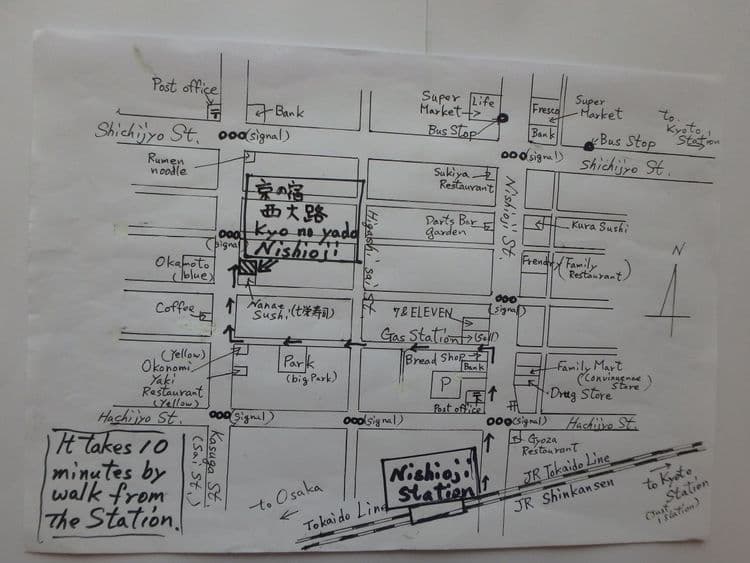 Post office
〒
Bank
Super
Market
Life
Bus Stop
Fresco
Bank
Super
Market
to
Kyoto
Station
Bus Stop
Shichijyo St.
(signal)
(signal)
Shichijyo St.
Rumen
noodle
Sukiya
Restaurant
京の宿
西大路
Kyo no yado
Nishioji
(signal)
Higashi sai St.
Darts Bar
Garden
Nishioji St.
Kura Sushi
N
Okamoto
(blue)
Frendry (Family
Restaurant)
Coffee
Nanae
Sushi (七栄寿司)
7&ELEVEN
Gas Station
(signal)
(Yellow)
Okonomi
Yaki
Restaurant
(Yellow)
Park
(big Park)
Bread Shop
Bank
P
〒
Post office
Family Mart
(Convinuence
Store)
Drug Store
Hachijyo St.
(signal)
(signal)
(signal)
Hachijyo St.
Gyoza
Restaurant
It takes 10
minutes by
walk from
The Station.
Kasuga St.
(Sai St.)
Nishioji
Station
to Osaka
Tokaido Line
JR Tokaido Line
JR Shinkansen
to Kyoto
Station
(Just
1 station)